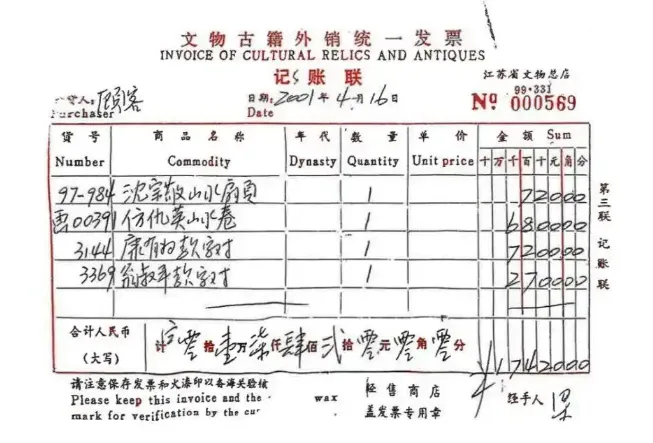 文物古籍外销统一发票
INVOICE OF CULTURAL RELICS AND ANTIQUES
记账联
江苏省文物总店
99·331
货人: 顾客
Purchaser
日期: 2001年4月16日
Date
№ 000569
货号 商品名称 年代 数量 单价 金额 Sum
Number Commodity Dynasty Quantity Unit price 十万千百十元角分
97-984 沈宗敬山水扇頁 1 72000
00391 仿仇英山水卷 1 680000
3144 康有为款字对 1 720000
3369 翁叔平款字对 1 270000
合计人民币
(大写)
计 零拾壹万柒仟肆佰弍拾零元零角零分 ¥1742000
第三联 记账联
请注意保存发票和火漆印以备海关验核
Please keep this invoice and the wax
mark for verification by the
经售商店
盖发票专用章
经手人